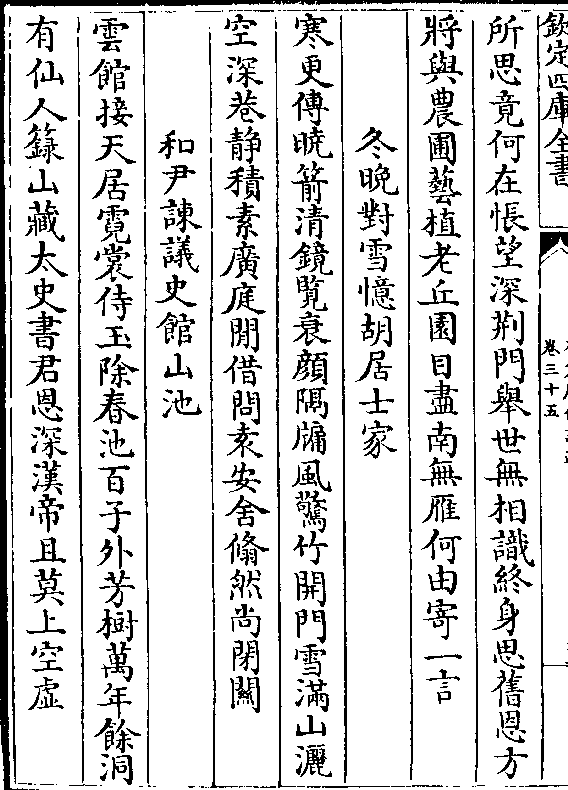 欽定四庫全書
卷三十五
所思竟何在悵望深荆門舉世無相識終身思舊恩方
將與農圃藝植老丘園目盡南無雁何由寄一言
冬晚對雪憶胡居士家
寒更傳曉箭清鏡覽衰顔隔牖風驚竹開門雪滿山灑
空深巷静積素廣庭閒借問袁安舍翛然尚閉關
和尹諫議史館山池
雲館接天居霓裳侍玉除春池百子外芳樹萬年餘洞
有仙人籙山藏太史書君恩深漢帝且莫上空虛